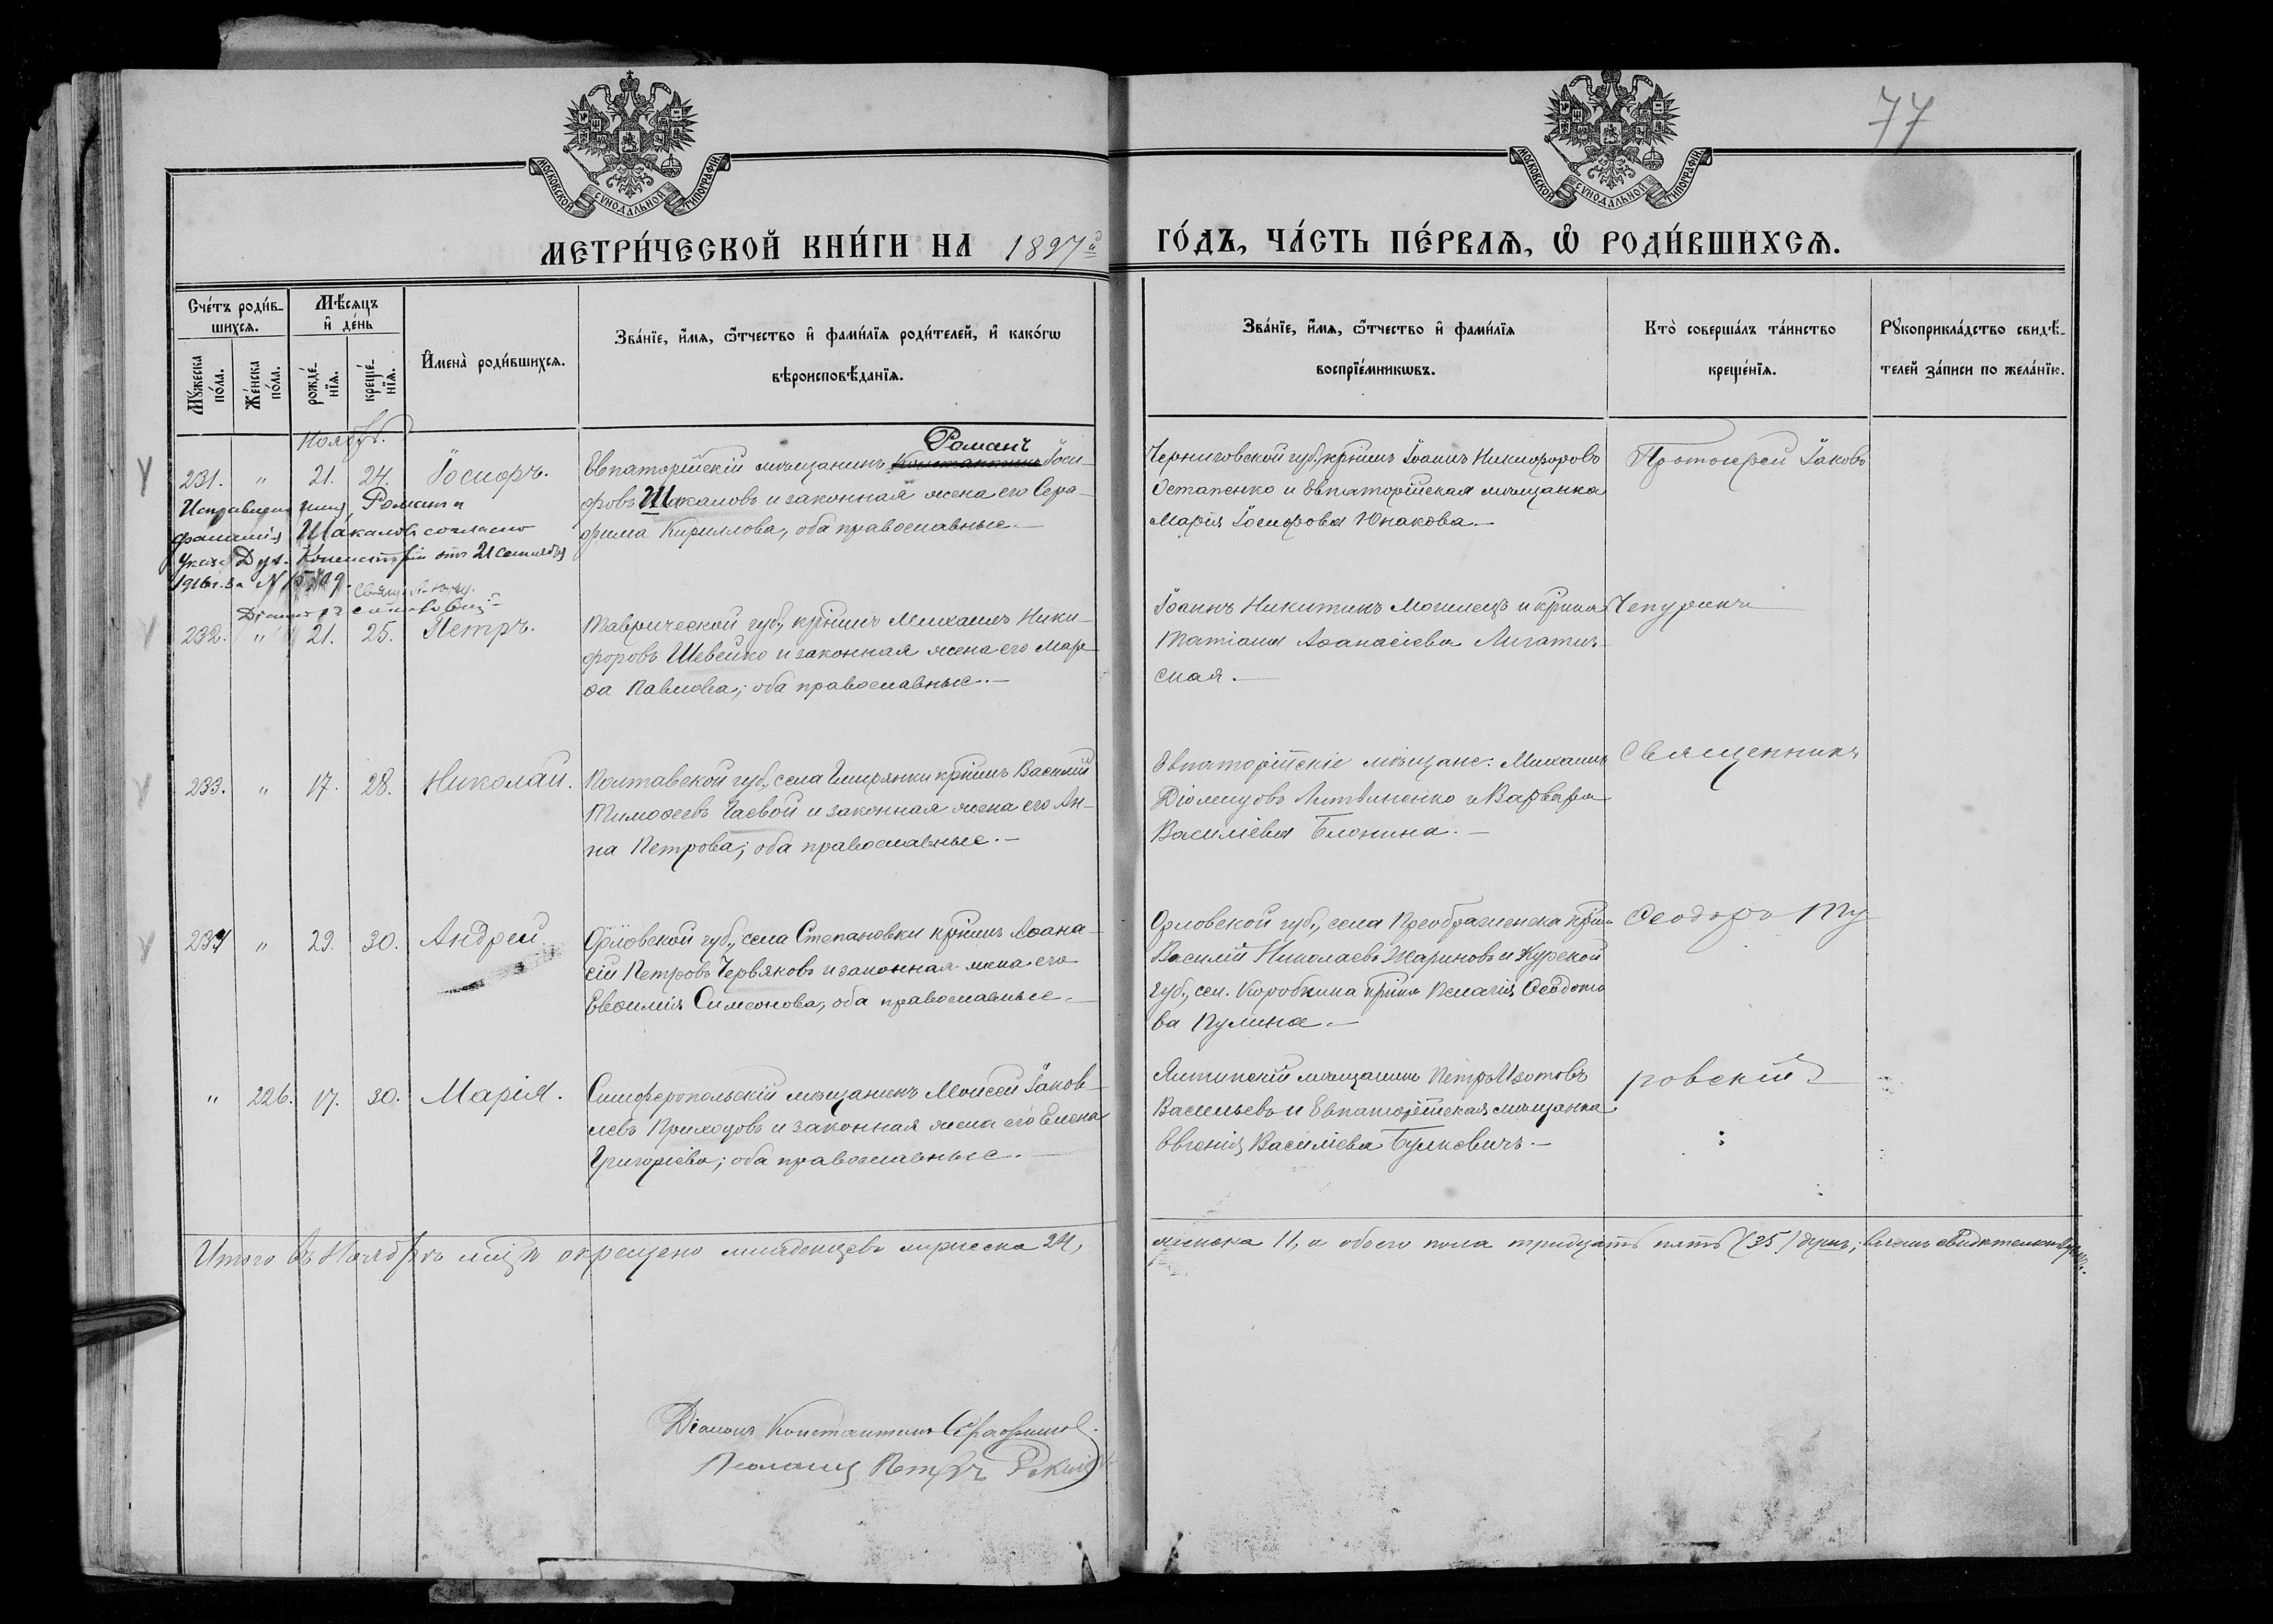 77
МОСКОВСКОЙ СѴНОДАЛЬНОЙ ТИПОГРАФІИ
МОСКОВСКОЙ СѴНОДАЛЬНОЙ ТИПОГРАФІИ
МЕТРИ́ЧЕСКОЙ КНИ́ГИ НА 1897й ГО́ДЪ, ЧА́СТЬ ПЕ́РВАѦ, Ѽ РОДИ́ВШИХСѦ.
Сче́тъ роди́в-
шихсѧ.
Мѣ́сѧцъ
и҆ де́нь
Мꙋ́жеска
по́ла.
Же́нска
по́ла.
рожде́-
нїѧ.
креще́-
нїѧ.
И҆мена̀ роди́вшихсѧ.
Зва́нїе, и҆́мѧ, ѻ҆́тчество и҆ фами́лїѧ роди́телей, и҆ како́гѡ
вѣроисповѣ́данїѧ.
Зва́нїе, и҆́мѧ, ѻ҆́тчество и҆ фами́лїѧ
воспрїе́мникѡвъ.
Кто̀ соверша́лъ та́инство
креще́нїѧ.
Рꙋкоприкла́дство свидѣ́-
телей за́писи по жела́нїю.
Ноябрь.
231. " 21. 24. Іосифъ.
Романъ
Евпаторійскій мѣщанинъ Константинъ Іоси-
фовъ Шакаловъ и законная жена его Сера-
фима Кириллова, оба православные.—
Черниговской губ., крнинъ Іоаннъ Никифоровъ
Остапенко и Евпаторійская мѣщанка
Марія Іосифова Юнакова.—
Протоіерей Іаковъ
Исправлены имя Романъ и
фамилія Шакаловъ согласно
Указа Дух. Консисторіи отъ 21 сентября
1916 г. за №
Діаконъ
232. " 21. 25. Петръ.
Таврической губ., крнинъ Михаилъ Ники-
форовъ Шевейко и законная жена его Мар-
ѳа Павлова; оба православные.—
Іоаннъ Никитинъ Могилецъ и крнка
Татіана Аѳанасіева Лигатин-
ская.—
Чепуринъ
233. " 17. 28. Николай.
Полтавской губ., села крнинъ Василій
Тимоѳеевъ Гаевой и законная жена его Ан-
на Петрова; оба православные.—
Евпаторійскіе мѣщане: Михаилъ
Діомидовъ Литвиненко и Варвара
Василіева Блонина.—
Священникъ
234 " 29. 30. Андрей.
Орловской губ., села Степановки крнинъ Аѳана-
сій Петровъ Червяковъ и законная жена его
Евѳимія Симеонова, оба православные.—
Орловской губ., села Преображенска крнин
Василій Николаевъ Жариновъ и Курской
губ., сел. Коробкина крнка Пелагія Ѳеодото-
ва Пулина.—
Ѳеодоръ Ту-
" 226. 17. 30. Марія.
Симферопольскій мѣщанинъ Моисей Іаков-
левъ Приходовъ и законная жена его Елена
Григоріева; оба православные.—
Ялтинскій мѣщанинъ Петръ Изотовъ
Васильевъ и Евпаторійская мѣщанка
Евгенія Василіева Булкевичъ.—
ровскій
Итого въ Ноябрѣ мцѣ окрещено младенцевъ мужеска 24, женска 11, а обоего пола тридцать пять (35) душъ;
Діаконъ Константинъ Серафимовъ.
Псаломщ Петръ